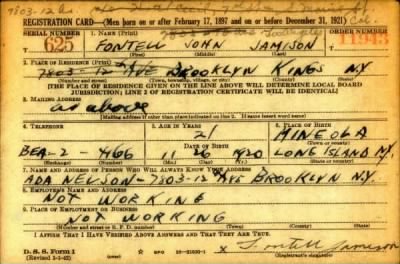 7803-12 Ave
REGISTRATION CARD—(Men born on or after February 17, 1897 and on or before December 31, 1921) Cal.
SERIAL NUMBER 1. NAME (Print) ORDER NUMBER
625 FONTELL JOHN JAMISON 11943
(First) (Middle) (Last)
2. PLACE OF RESIDENCE (Print)
7803-12 AVE BROOKLYN KINGS NY
(Number and street) (Town, township, village, or city) (County) (State)
[THE PLACE OF RESIDENCE GIVEN ON THE LINE ABOVE WILL DETERMINE LOCAL BOARD
JURISDICTION; LINE 2 OF REGISTRATION CERTIFICATE WILL BE IDENTICAL]
3. MAILING ADDRESS
as above
[Mailing address if other than place indicated on line 2. If same insert word same]
4. TELEPHONE 5. AGE IN YEARS 6. PLACE OF BIRTH
21 MINEOLA
DATE OF BIRTH (Town or county)
BEA-2- 4166 11 26 1920 LONG ISLAND N.Y.
(Exchange) (Number) (Mo.) (Day) (Yr.) (State or country)
7. NAME AND ADDRESS OF PERSON WHO WILL ALWAYS KNOW YOUR ADDRESS
ADA NELSON-7803-12 AVE BROOKLYN N.Y.
8. EMPLOYER'S NAME AND ADDRESS
NOT WORKING
9. PLACE OF EMPLOYMENT OR BUSINESS
NOT WORKING
(Number and street or R. F. D. number) (Town) (County) (State)
I AFFIRM THAT I HAVE VERIFIED ABOVE ANSWERS AND THAT THEY ARE TRUE.
D. S. S. Form 1
(Revised 1-1-42) (over) x Fontell Jamison
(Registrant's signature)